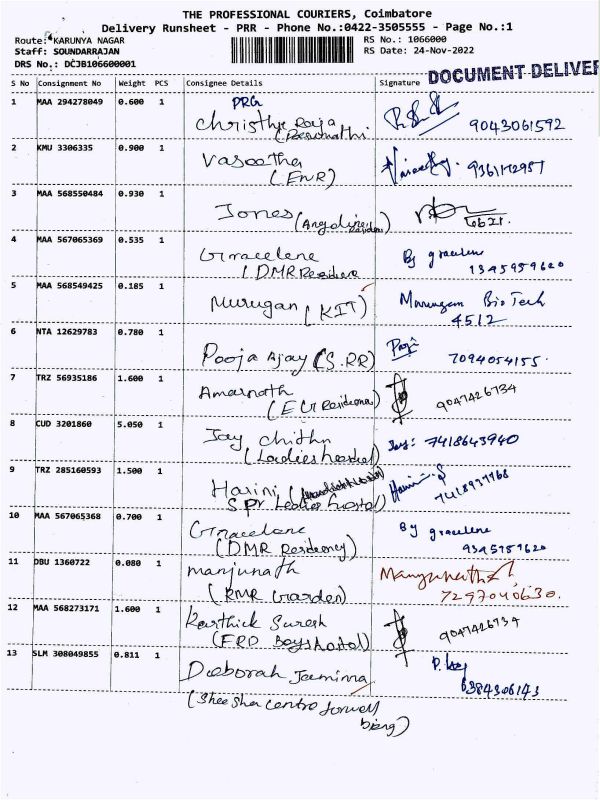 THE PROFESSIONAL COURIERS, Coimbatore
Delivery Runsheet - PRR - Phone No.:0422-3505555 - Page No.:1
Route: KARUNYA NAGAR RS No.: 1066000
Staff: SOUNDARRAJAN RS Date: 24-Nov-2022
DRS No.: DCJB106600001
DOCUMENT DELIVER
S No Consignment No Weight PCS Consignee Details Signature
PRG
1 MAA 294278049 0.600 1 9043061592
2 KMU 3306335 0.900 1 Vasootha
(EWR)
3 MAA 568550484 0.930 1 Jones
4 MAA 567065369 0.535 1 Gracelene By gracelene
(DMR
5 MAA 568549425 0.185 1 Murugan (KIT) Murugan Bio Tech
4512
6 NTA 12629783 0.780 1 Pooja Ajay (S.RR) 7094054155
7 TRZ 56935186 1.600 1 Amarnath 9047426734
8 CUD 3201860 5.050 1 Jay 7418643940
(Ladies hostel)
9 TRZ 285160593 1.500 1 Harini
SPR Ladies hostel)
10 MAA 567065368 0.700 1 Gracelene By gracelene
(DMR Residency)
11 DBU 1360722 0.080 1 manjunath
(RMR Garden) 7297040630.
12 MAA 568273171 1.600 1 Karthick Suresh 9047426734
(FRD Boys hostel)
13 SLM 308049855 0.811 1 Deborah Jemima 6384306143